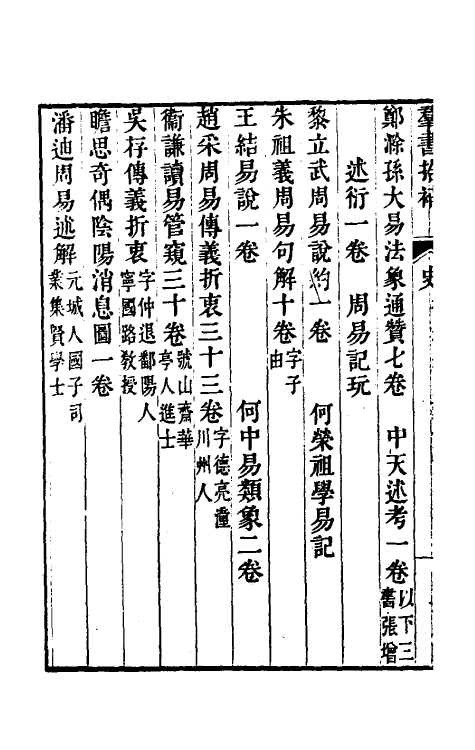 羣書拾補 史
鄭滁孫大易法象通贊七卷 中天述考一卷 以下三書張增
述衍一卷 周易記玩
黎立武周易說約一卷 何榮祖學易記
朱祖義周易句解十卷 字子由
王結易說一卷 何中易類象二卷
趙采周易傳義折衷三十三卷 字德亮潼川州人
衞謙讀易管窺三十卷 號山齋華亭人進士
吳存傳義折衷 字仲退鄱陽人寧國路教授
瞻思奇偶陰陽消息圖一卷
潘迪周易述解 元城人國子司業集賢學士